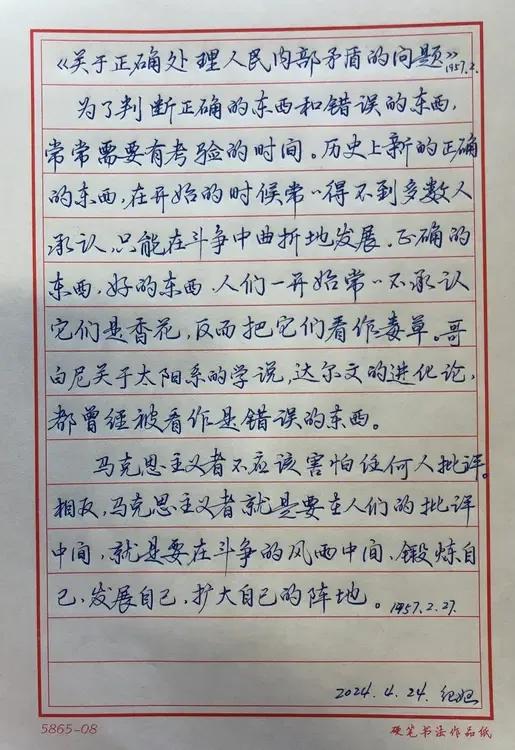 《关于正确处理人民内部矛盾的问题》1957.2.
为了判断正确的东西和错误的东西,
常常需要有考验的时间。历史上新的正确
的东西,在开始的时候常〃得不到多数人
承认,只能在斗争中曲折地发展。正确的
东西,好的东西,人们一开始常〃不承认
它们是香花,反而把它们看作毒草。哥
白尼关于太阳系的学说,达尔文的进化论,
都曾经被看作是错误的东西。
马克思主义者不应该害怕任何人批评。
相反,马克思主义者就是要在人们的批评
中间,就是要在斗争的风雨中间,锻炼自
己,发展自己,扩大自己的阵地。1957.2.27.
2024.4.24.
5865-08
硬笔书法作品纸